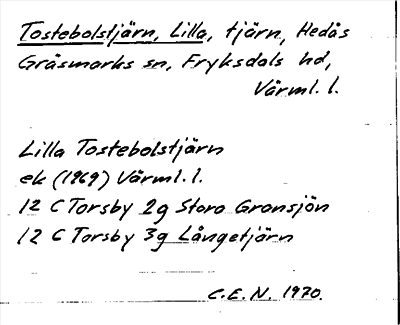 Tostebolstjärn, Lilla, tjärn, Hedås
Gräsmarks sn, Fryksdals hd,
Värml. l.
Lilla Tostebolstjärn
ek (1969) Värml. l.
12 C Torsby 2g Stora Gransjön
12 C Torsby 3g Långetjärn
C.E.N. 1970.